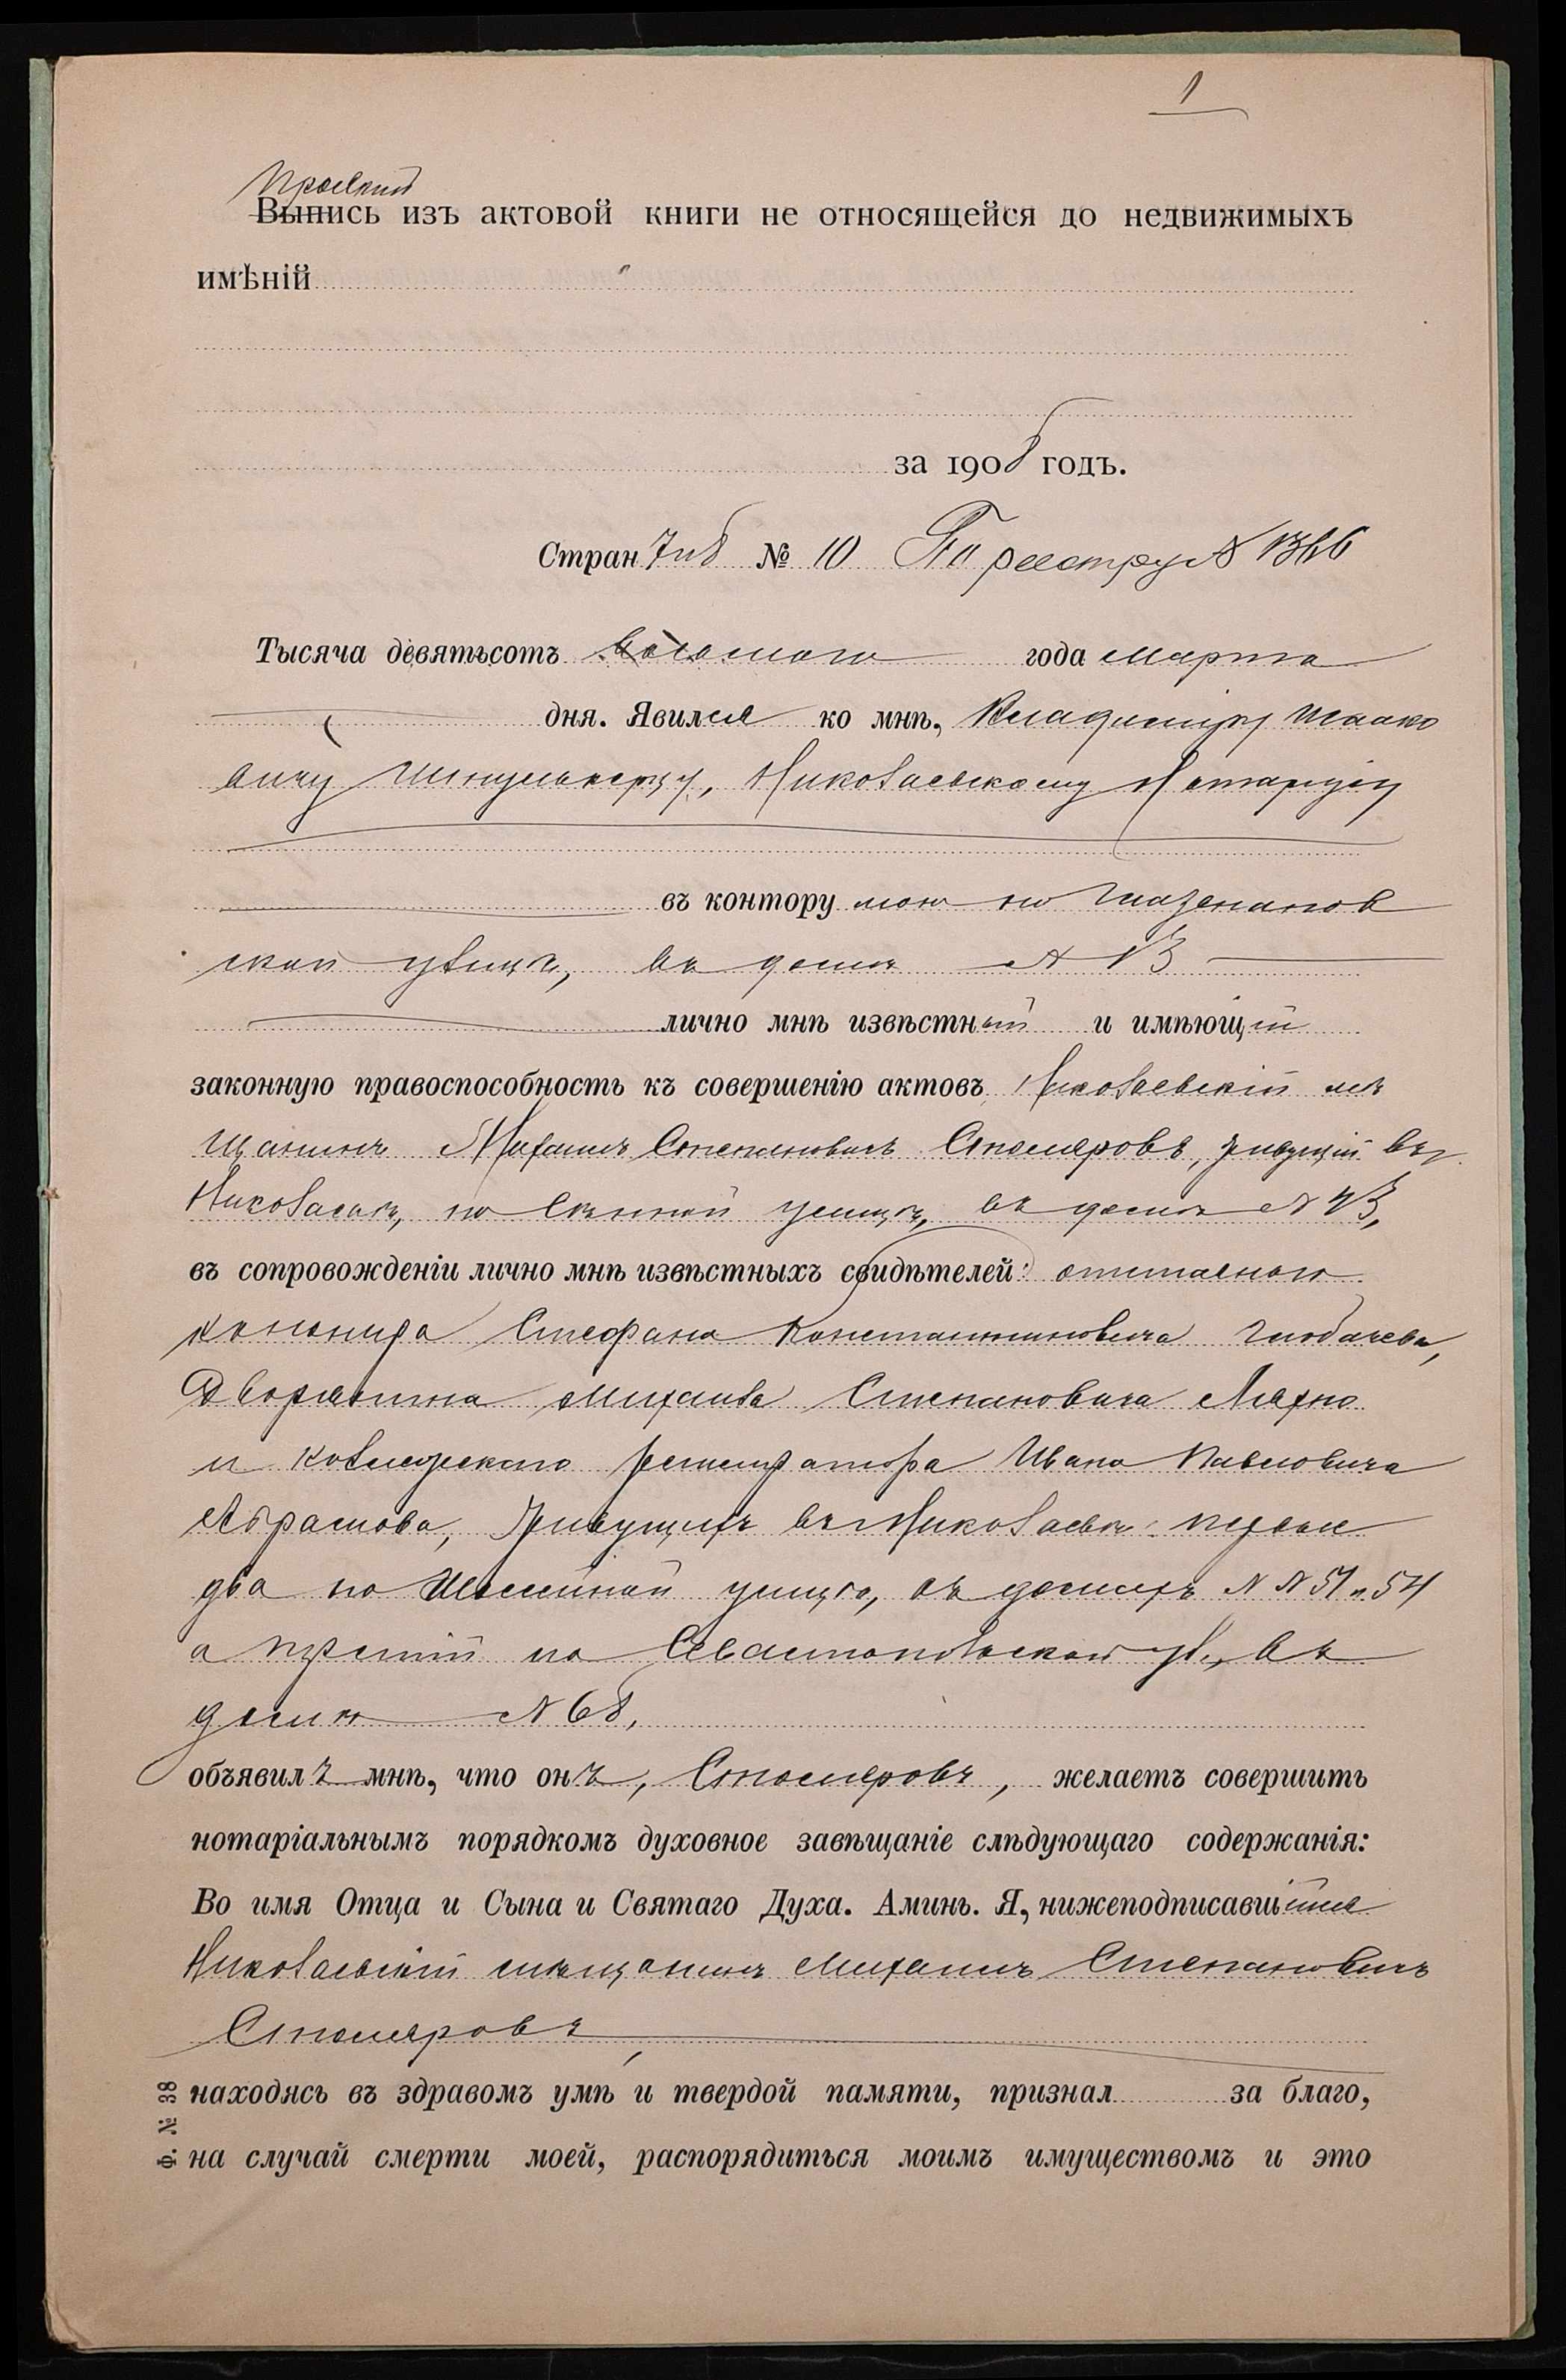 1
Проектъ
Выпись изъ актовой книги не относящейся до недвижимыхъ
имѣній
за 1908 годъ.
Стран 7 и 8 № 10 По реестру № 1366
Тысяча девятьсотъ восьмого года марта
дня. Явился ко мнѣ, Владиміру Исаако
вичу Шпильберцу, Николаевскому Нотаріусу
въ контору мою по Глазенапов
ской улицѣ, въ домѣ № 13
лично мнѣ извѣстный и имѣющій
законную правоспособность къ совершенію актовъ Николаевскій мѣ
щанинъ Михаилъ Степановичъ Столяровъ, живущій въ г.
Николаевѣ, по Сѣнной улицѣ, въ домѣ № 43,
въ сопровожденіи лично мнѣ извѣстныхъ свидѣтелей: отставного
канонира Стефана Константиновича Глобачева,
Дворянина Михаила Степановича Махно
и коллежскаго регистратора Ивана Павловича
Абрамова, живущихъ въ Николаевѣ: первые
два по Шоссейной улицѣ, въ домахъ №№ 51 и 54
а третій по Севастопольской ул., въ
домѣ № 68,
объявилъ мнѣ, что онъ, Столяровъ, желаетъ совершить
нотаріальнымъ порядкомъ духовное завѣщаніе слѣдующаго содержанія:
Во имя Отца и Сына и Святаго Духа. Аминь. Я, нижеподписавшійся
Николаевскій мѣщанинъ Михаилъ Степановичъ
Столяровъ,
находясь въ здравомъ умѣ и твердой памяти, призналъ за благо,
на случай смерти моей, распорядиться моимъ имуществомъ и это
Ф. № 38